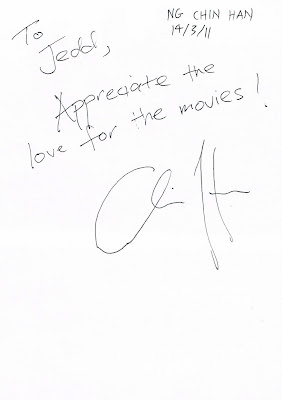 NG CHIN HAN
14/3/11
To
Jedd,
Appreciate the
love for the movies!